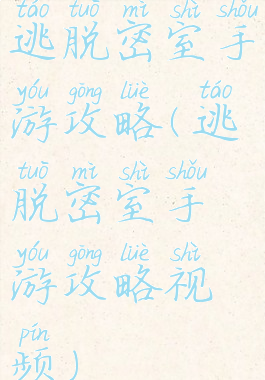 táo tuō mì shì shǒu
逃脱密室手
yóu gōng lüè táo
游攻略(逃
tuō mì shì shǒu
脱密室手
yóu gōng lüè shì
游攻略视
pín
频)